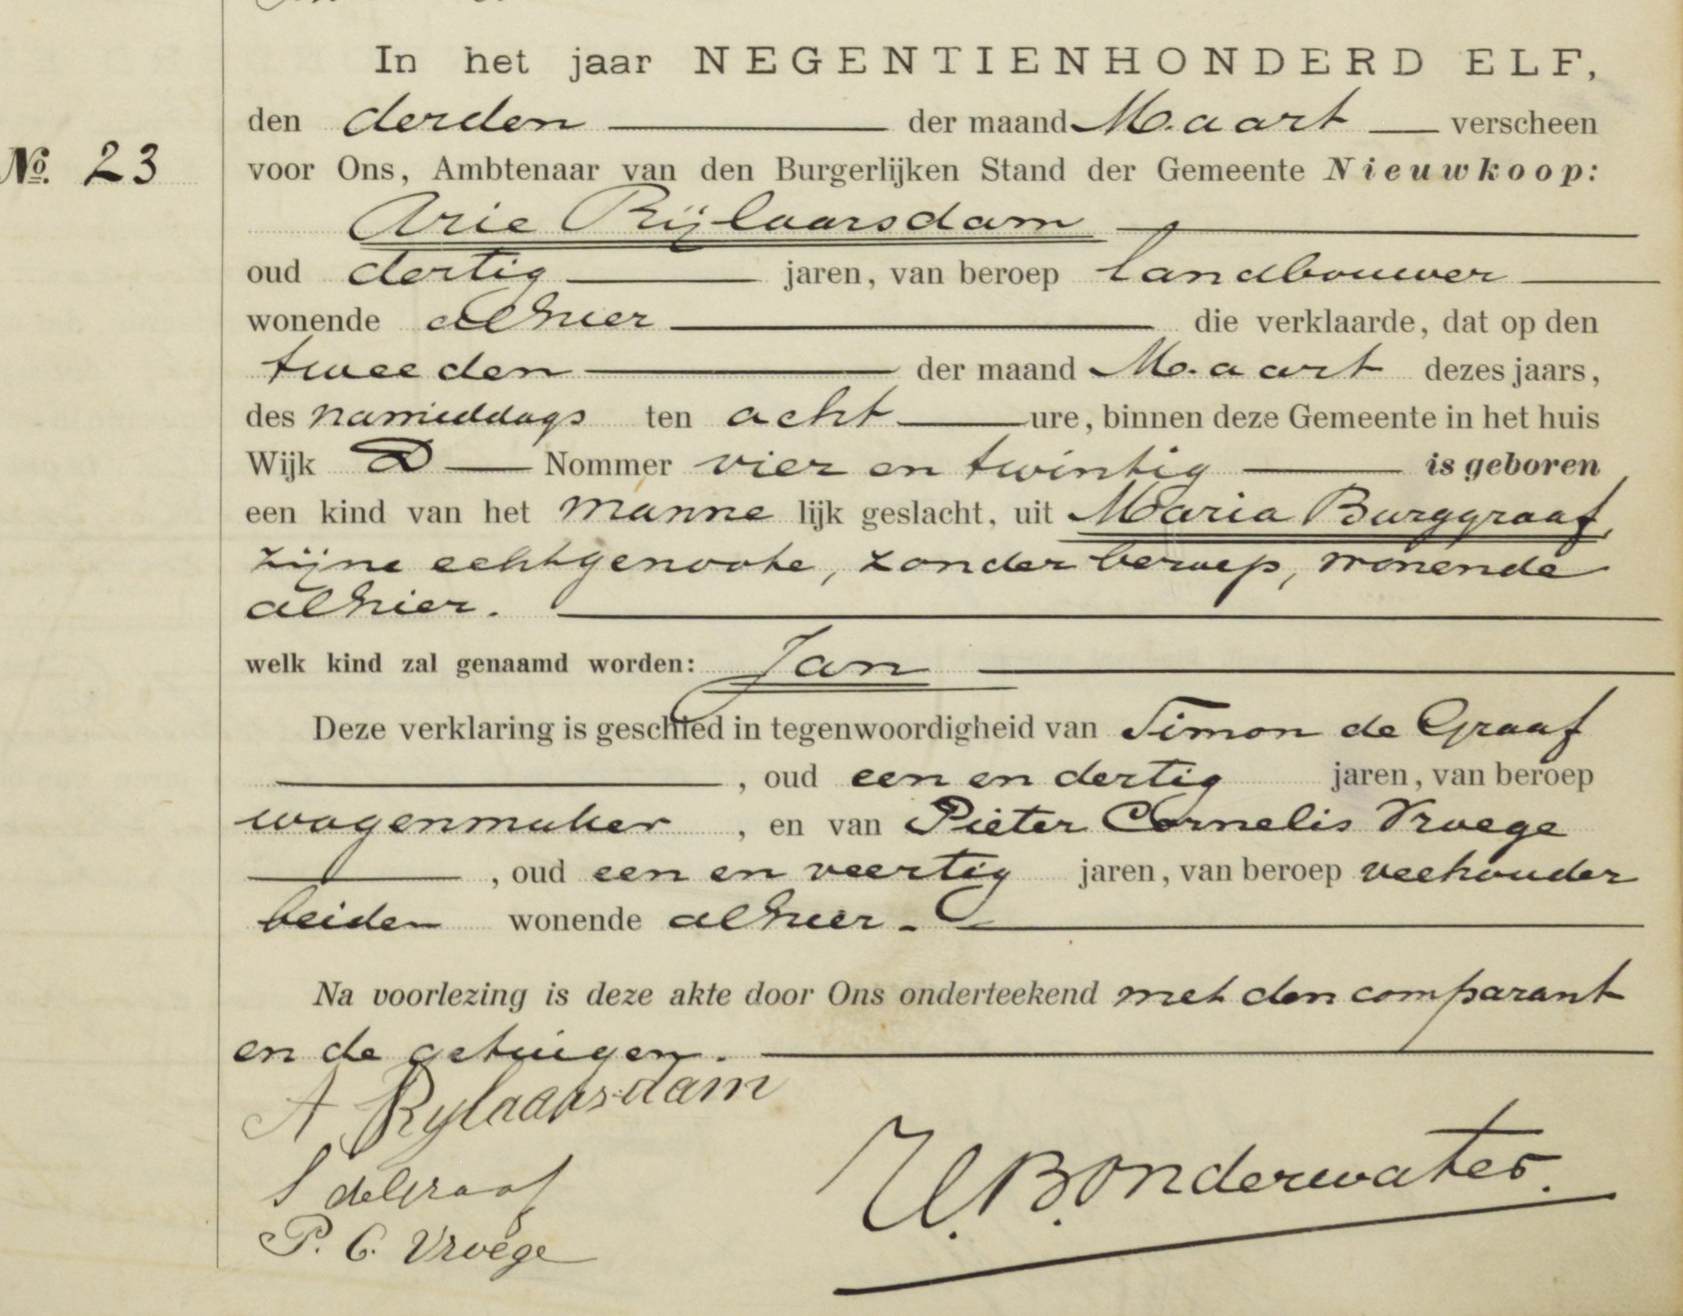 In het jaar NEGENTIENHONDERD ELF,
den derden der maand Maart verscheen
No. 23
voor Ons, Ambtenaar van den Burgerlijken Stand der Gemeente Nieuwkoop:
Arie Rijlaarsdam
oud dertig jaren, van beroep landbouwer
wonende alhier die verklaarde, dat op den
tweeden der maand Maart dezes jaars,
des namiddags ten acht ure, binnen deze Gemeente in het huis
Wijk D Nommer vier en twintig is geboren
een kind van het manne lijk geslacht, uit Maria Burggraaf,
zijne echtgenoote, zonder beroep, wonende
alhier.
welk kind zal genaamd worden: Jan
Deze verklaring is geschied in tegenwoordigheid van Simon de Graaf
, oud een en dertig jaren, van beroep
wagenmaker, en van Pieter Cornelis Vroege
, oud een en veertig jaren, van beroep veehouder
beiden wonende alhier.
Na voorlezing is deze akte door Ons onderteekend met den comparant
en de getuigen.
A Rijlaarsdam
S de Graaf
P. C. Vroege
W. Bonderwater.